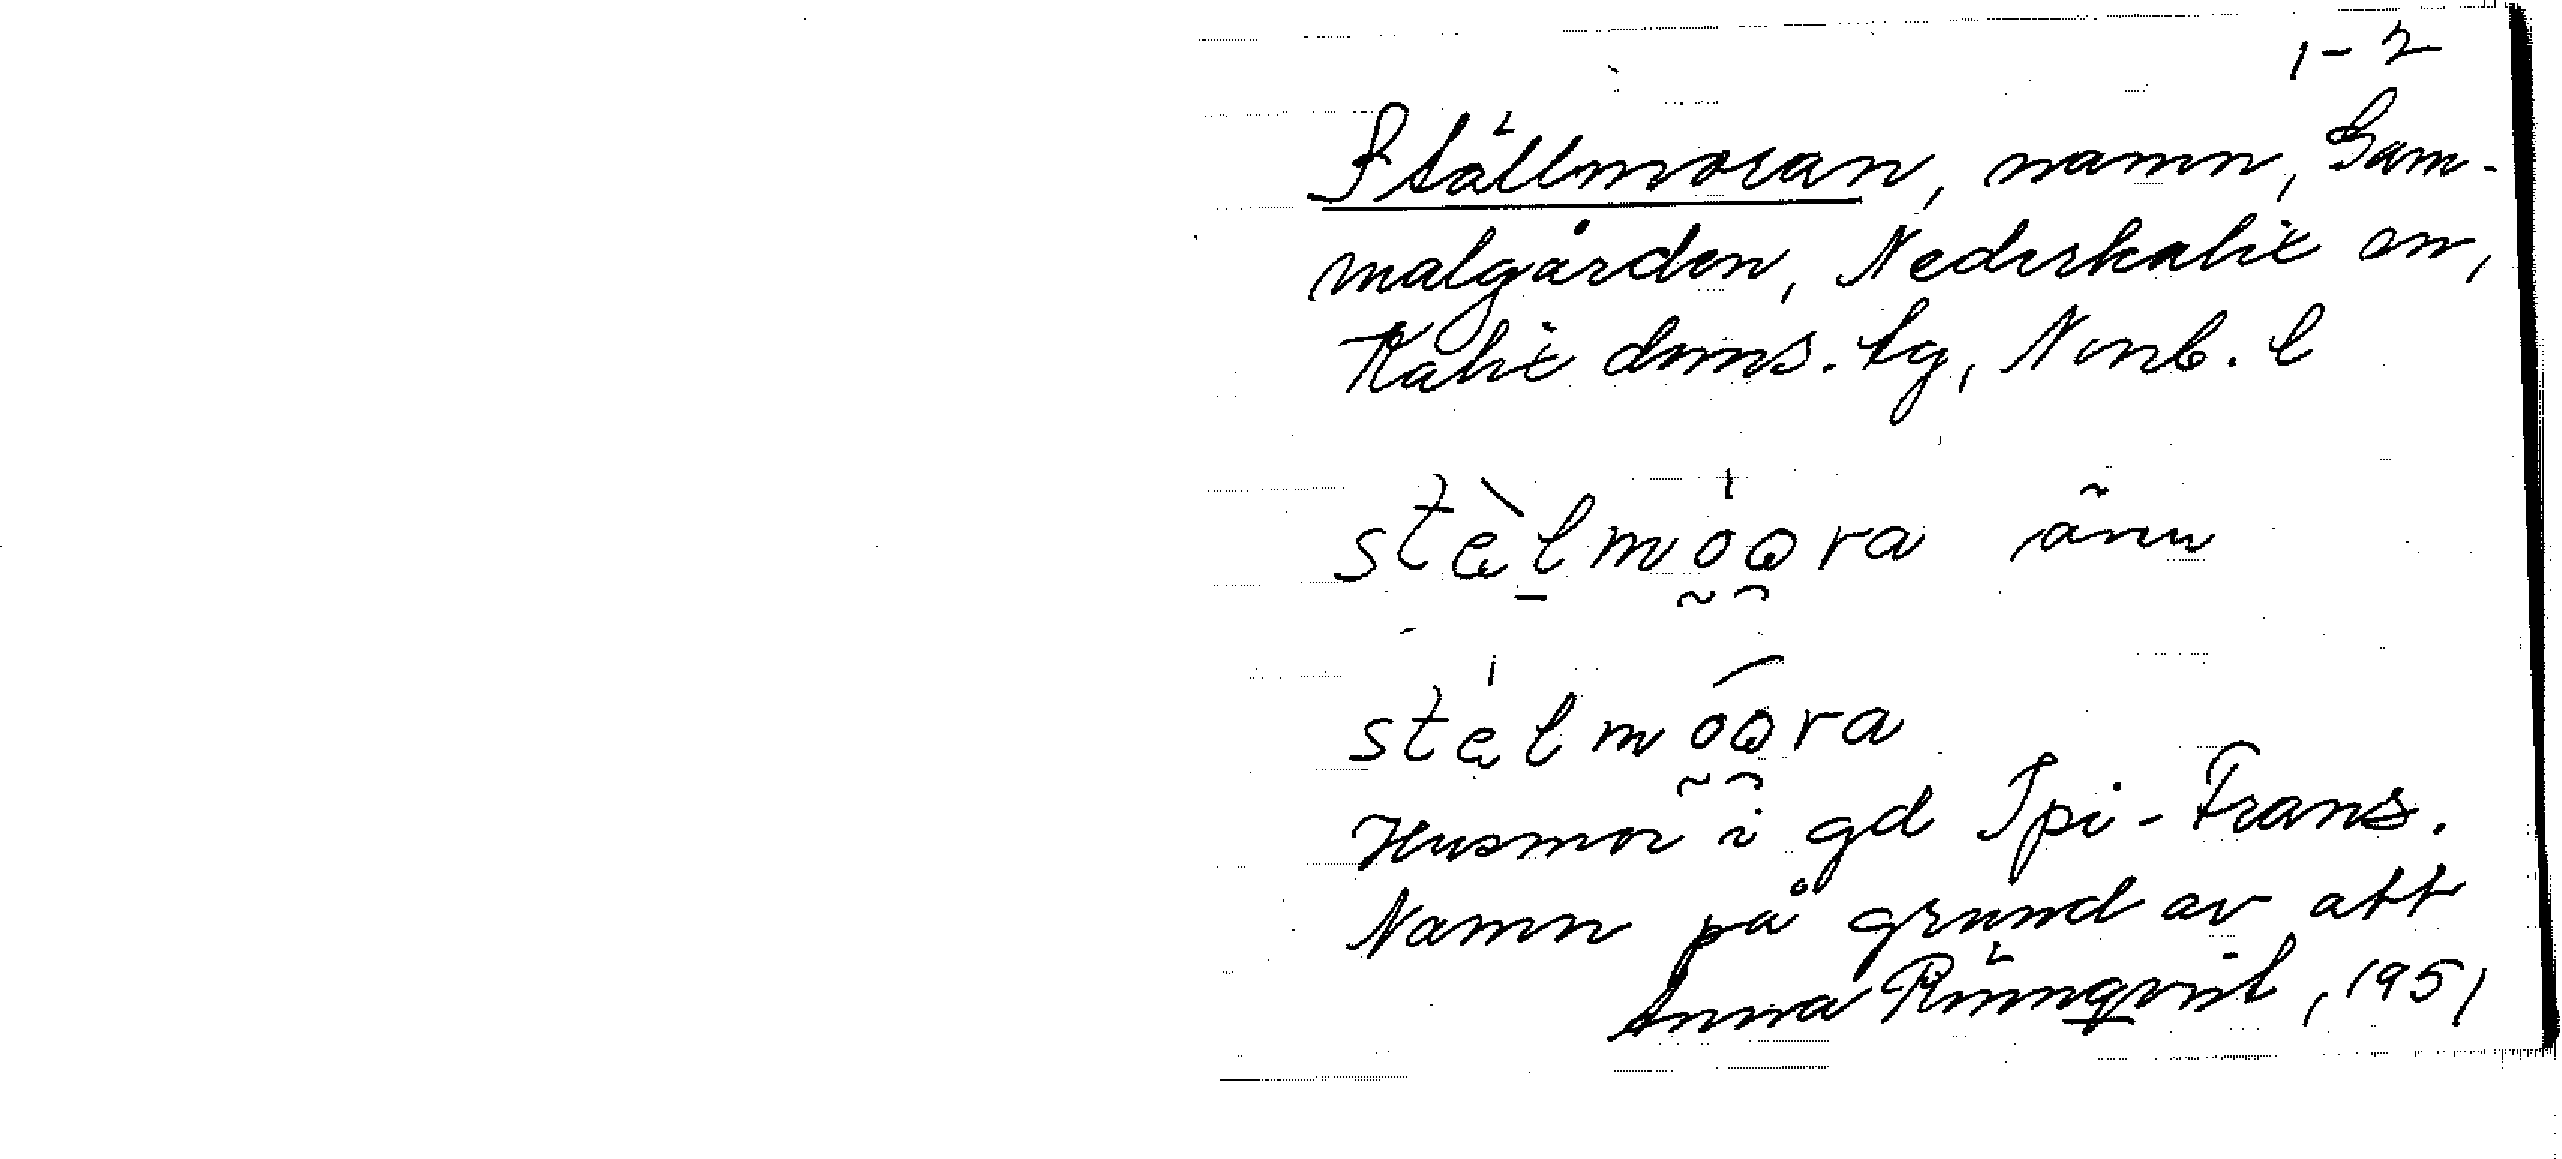 1-2
Ställmoran, namn, Gam-
malgården, Nederkalix sn,
Kalix doms. tg, Norrb. l
stèlmoora änn
stelmoora
Husmor i gd Spi-Frans.
Namn på grund av att
Anna Rönnqvist, 1951